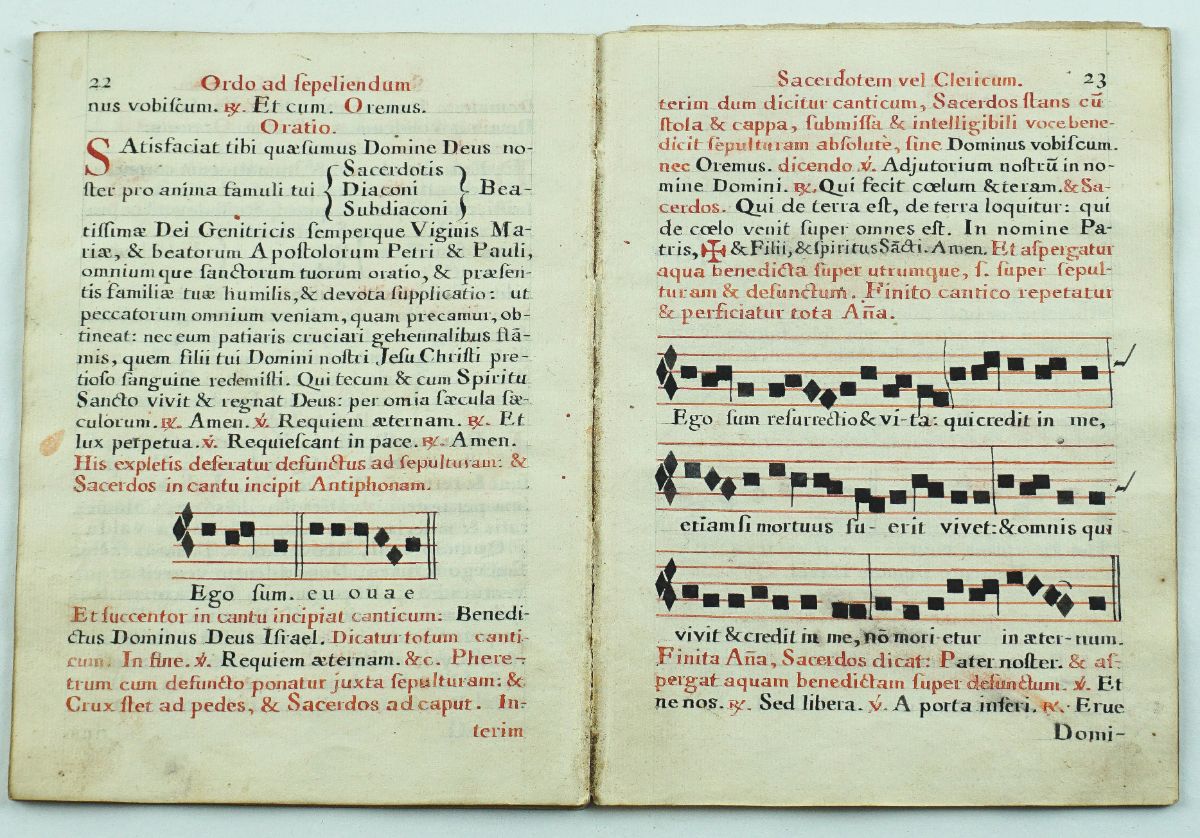 22 Ordo ad ſepeliendum
nus vobiſcum. ℟. Et cum. Oremus.
Oratio.
SAtisfaciat tibi quæſumus Domine Deus no-
Sacerdotis
ſter pro anima famuli tui { Diaconi } Bea-
Subdiaconi
tiſſimæ Dei Genitricis ſemperque Viginis Ma-
riæ, & beatorum Apoſtolorum Petri & Pauli,
omnium que ſanctorum tuorum oratio, & præſen-
tis familiæ tuæ humilis, & devota ſupplicatio: ut
peccatorum omnium veniam, quam precamur, ob-
tineat: nec eum patiaris cruciari gehennalibus flā-
mis, quem filii tui Domini noſtri Jeſu Chriſti pre-
tioſo ſanguine redemiſti. Qui tecum & cum Spiritu
Sancto vivit & regnat Deus: per omia ſæcula ſæ-
culorum. ℟. Amen. ℣. Requiem æternam. ℟. Et
lux perpetua. ℣. Requieſcant in pace. ℟. Amen.
His expletis deferatur defunctus ad ſepulturam: &
Sacerdos in cantu incipit Antiphonam.
Ego ſum. e u o u a e
Et ſuccentor in cantu incipiat canticum: Benedi-
ctus Dominus Deus Iſrael. Dicatur totum canti-
cum. In fine. ℣. Requiem æternam. &c. Phere-
trum cum defuncto ponatur juxta ſepulturam: &
Crux ſtet ad pedes, & Sacerdos ad caput. In-
terim
Sacerdotem vel Clericum. 23
terim dum dicitur canticum, Sacerdos ſtans cū
ſtola & cappa, ſubmiſſa & intelligibili voce bene-
dicit ſepulturam abſolute, ſine Dominus vobiſcum.
nec Oremus. dicendo ℣. Adjutorium noſtrū in no-
mine Domini. ℟. Qui fecit cœlum & teram. & Sa-
cerdos. Qui de terra eſt, de terra loquitur: qui
de cœlo venit ſuper omnes eſt. In nomine Pa-
tris, ✠ & Filii, & ſpiritus Sācti. Amen. Et aſpergatur
aqua benedicta ſuper utrumque, ſ. ſuper ſepul-
turam & defunctum. Finito cantico repetatur
& perficiatur tota Añа.
Ego ſum reſurrectio & vi-ta: qui credit in me,
etiam ſi mortuus fu- erit vivet: & omnis qui
vivit & credit in me, nō mori-etur in æter-num.
Finita Aña, Sacerdos dicat: Pater noſter. & aſ-
pergat aquam benedictam ſuper defunctum. ℣. Et
ne nos. ℟. Sed libera. ℣. A porta inferi. ℟. Erue
Domi-